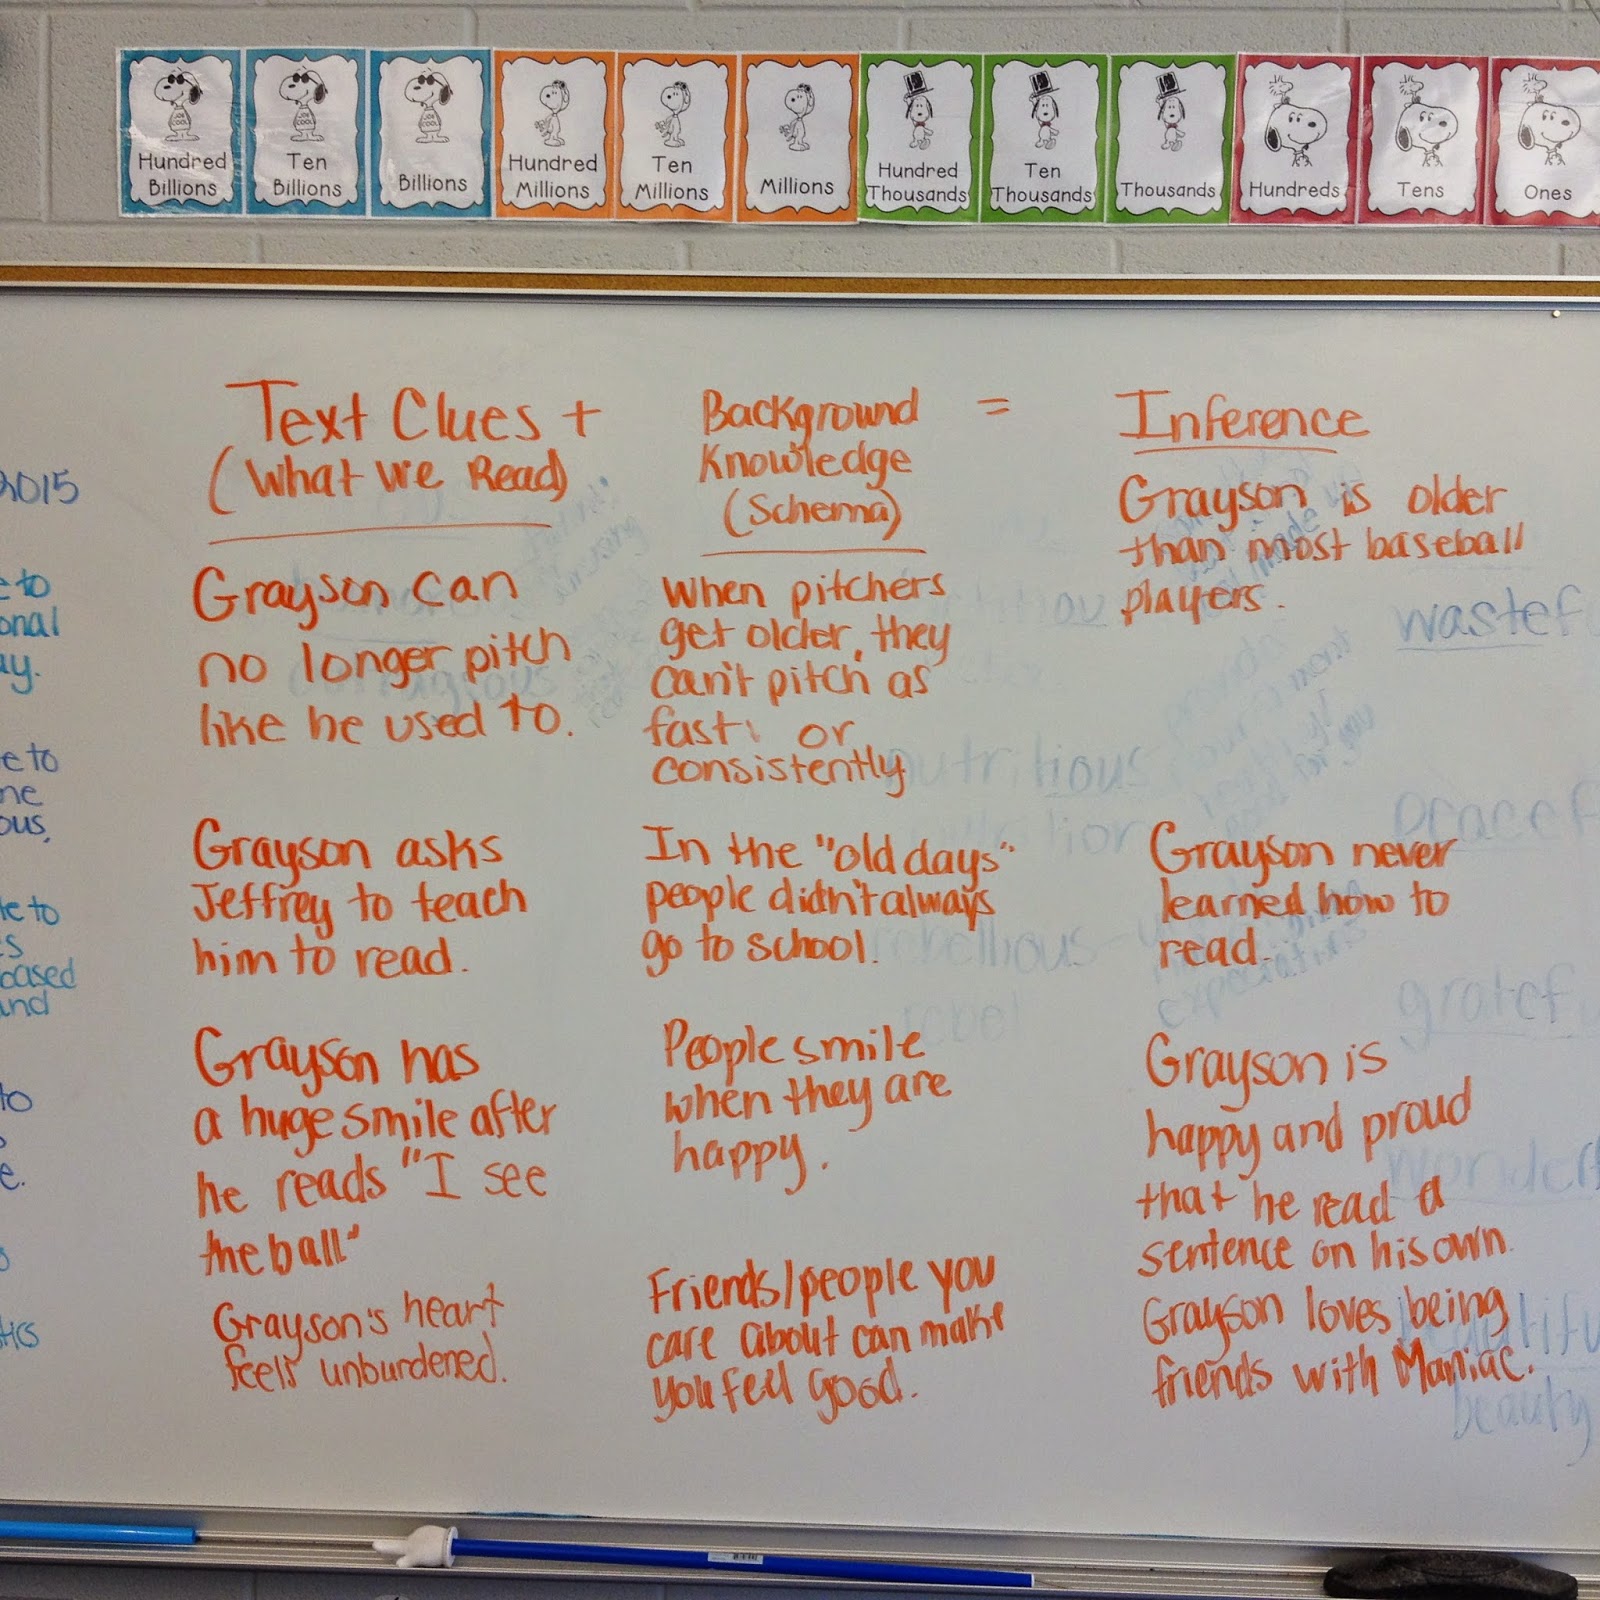 Hundred
Billions
Ten
Billions
Billions
Hundred
Millions
Ten
Millions
Millions
Hundred
Thousands
Ten
Thousands
Thousands
Hundreds
Tens
Ones
2015
e to
onal
ay.
e to
ne
ous,
te to
based
and
to
e.
Text Clues +
(What we Read)
Grayson can
no longer pitch
like he used to.
Grayson asks
Jeffrey to teach
him to read.
Grayson has
a huge smile after
he reads "I see
the ball"
Grayson's heart
feels unburdened.
Background
Knowledge
(Schema)
=
When pitchers
get older, they
can't pitch as
fast or
consistently
In the "old days"
people didn't always
go to school.
People smile
when they are
happy.
Friends/people you
care about can make
you feel good.
Inference
Grayson is older
than most baseball
players.
Grayson never
learned how to
read.
Grayson is
happy and proud
that he read a
sentence on his own.
Grayson loves being
friends with Maniac.
wastef
peacef
gratef
wonderf
beautifu
beauty
nutritious
rebellious
rebel